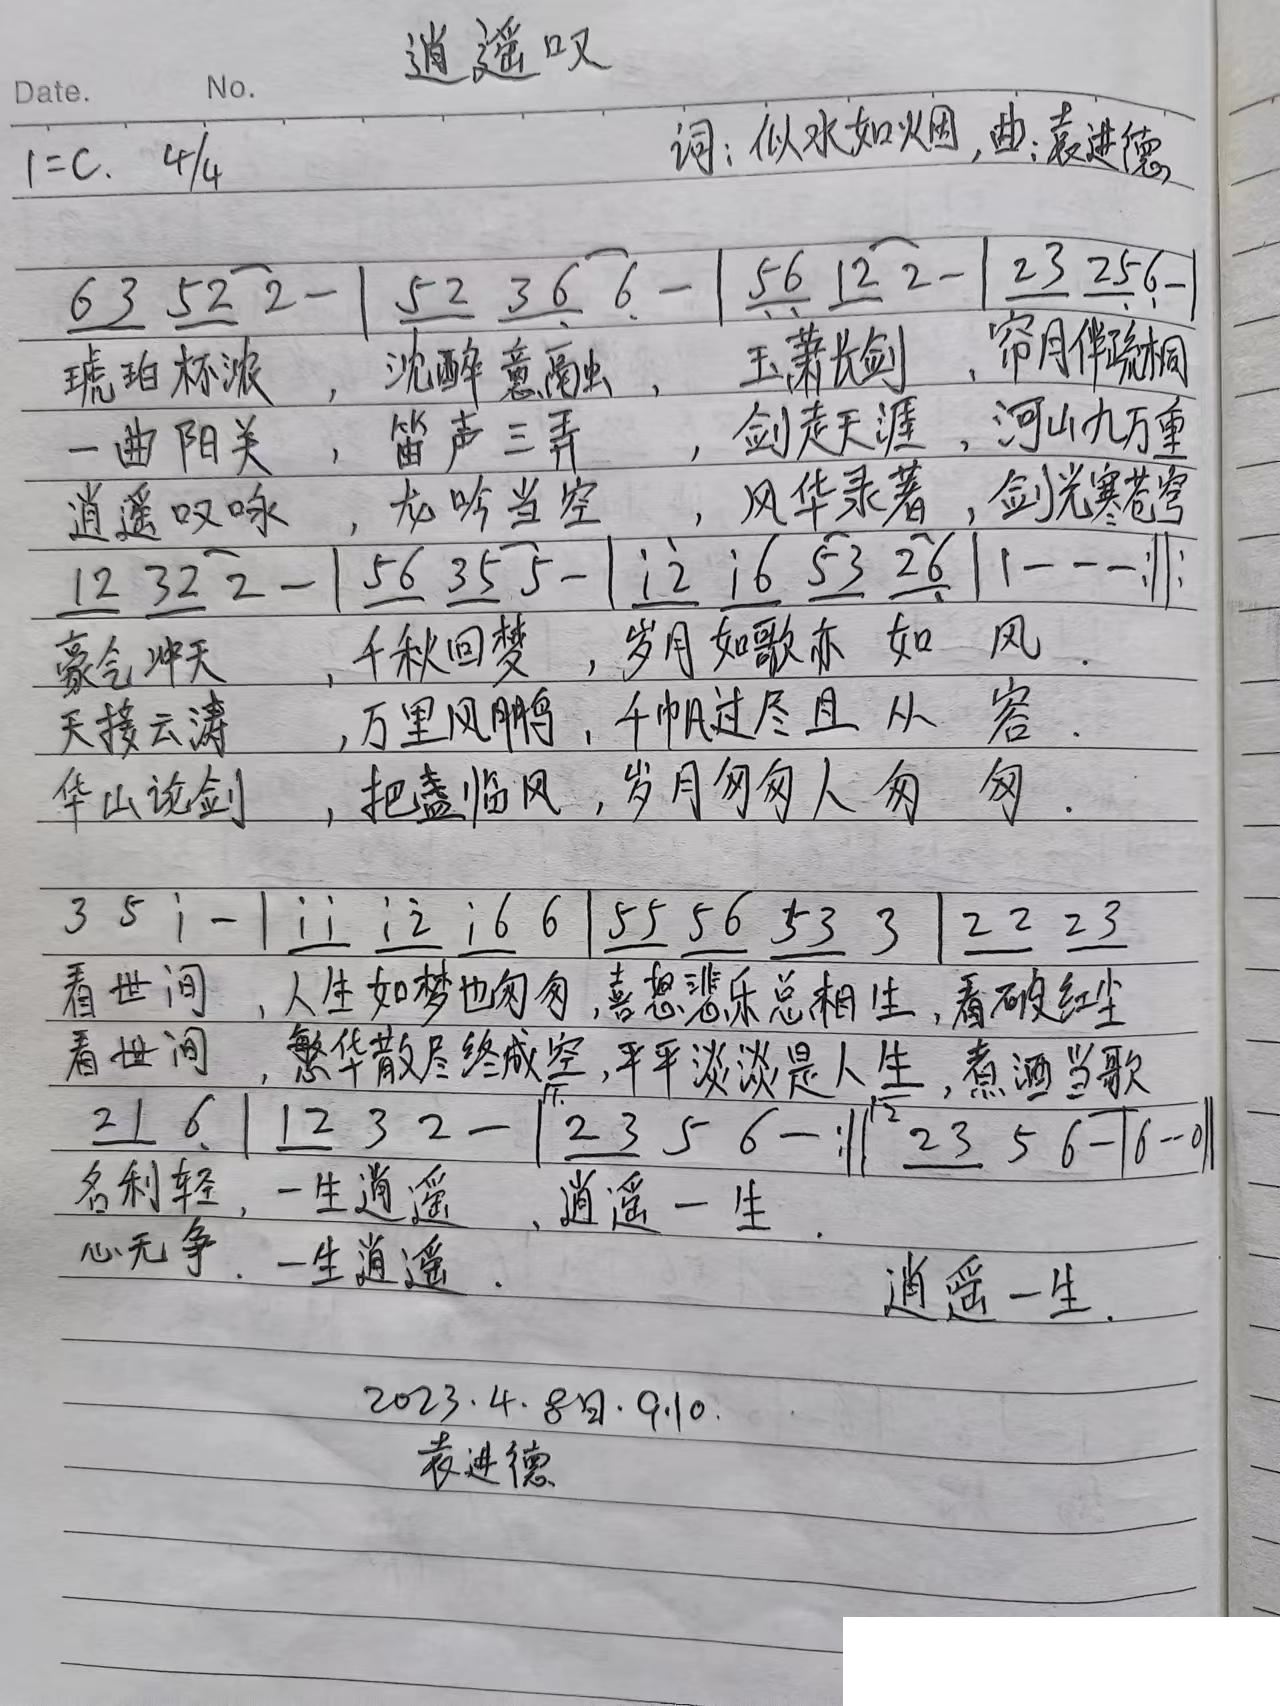 逍遥叹
Date. No.
1=C. 4/4 词：似水如烟，曲：袁进德
63 52 2 - | 52 36 6 - | 56 12 2 - | 23 25 6 - |
琥珀杯浓，沈醉意融，玉萧长剑，帘月伴疏桐
一曲阳关，笛声三弄，剑走天涯，河山九万重
逍遥叹咏，龙吟当空，风华录著，剑光寒苍穹
12 32 2 - | 56 35 5 - | i2 i6 53 26 | 1 - - - :‖:
豪气冲天，千秋回梦，岁月如歌亦如风.
天接云涛，万里风鹏，千帆过尽且从容.
华山论剑，把盏临风，岁月匆匆人匆匆.
3 5 i - | ii i2 i6 6 | 55 56 53 3 | 22 23
看世间，人生如梦也匆匆，喜怒悲乐总相生，看破红尘
看世间，繁华散尽终成空，平平淡淡是人生，煮酒当歌
21 6 | 12 3 2 - | 23 5 6 - :‖ 23 5 6 - | 6 - - 0 ‖
名利轻，一生逍遥，逍遥一生.
心无争. 一生逍遥. 逍遥一生.
2023.4.8日.9.10.
袁进德